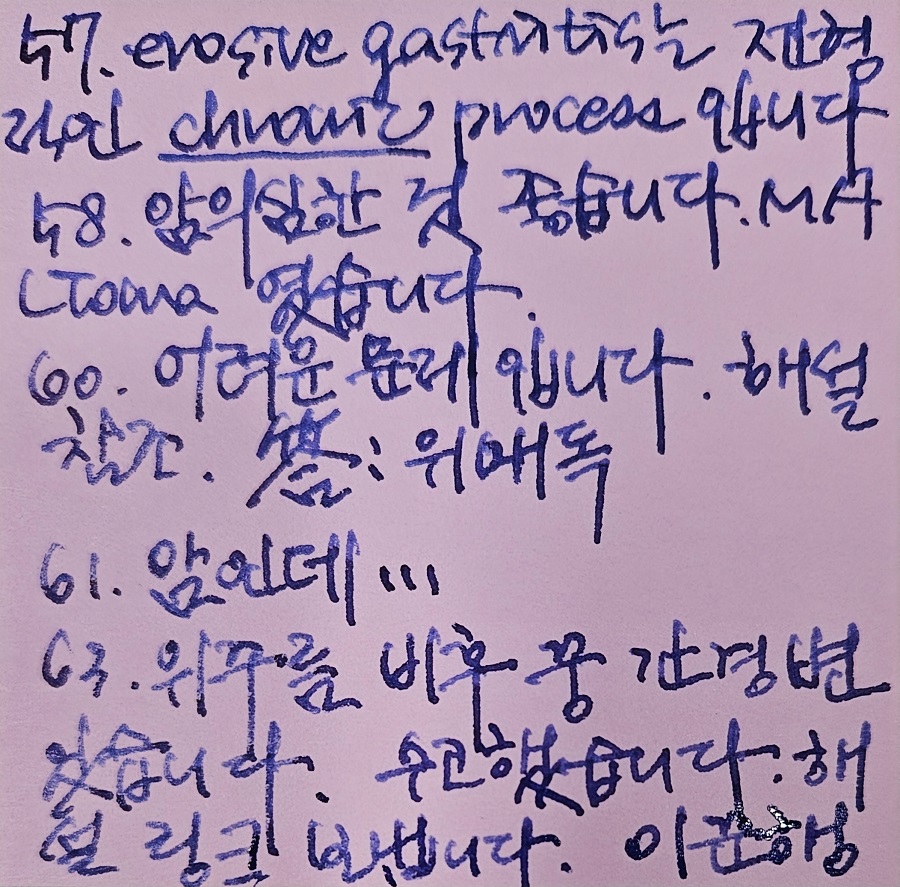 57. erosive gastritis는 전형
적인 chronic process 입니다
58. 암의심한 것 좋습니다. MA
LToma 였습니다.
60. 어려운 문제 입니다. 해설
참조. 答: 위매독
61. 암인데...
63. 위주름 비후 꽝 간경변
있습니다. 수고했습니다. 해
설 링크 보냅니다. 이준행